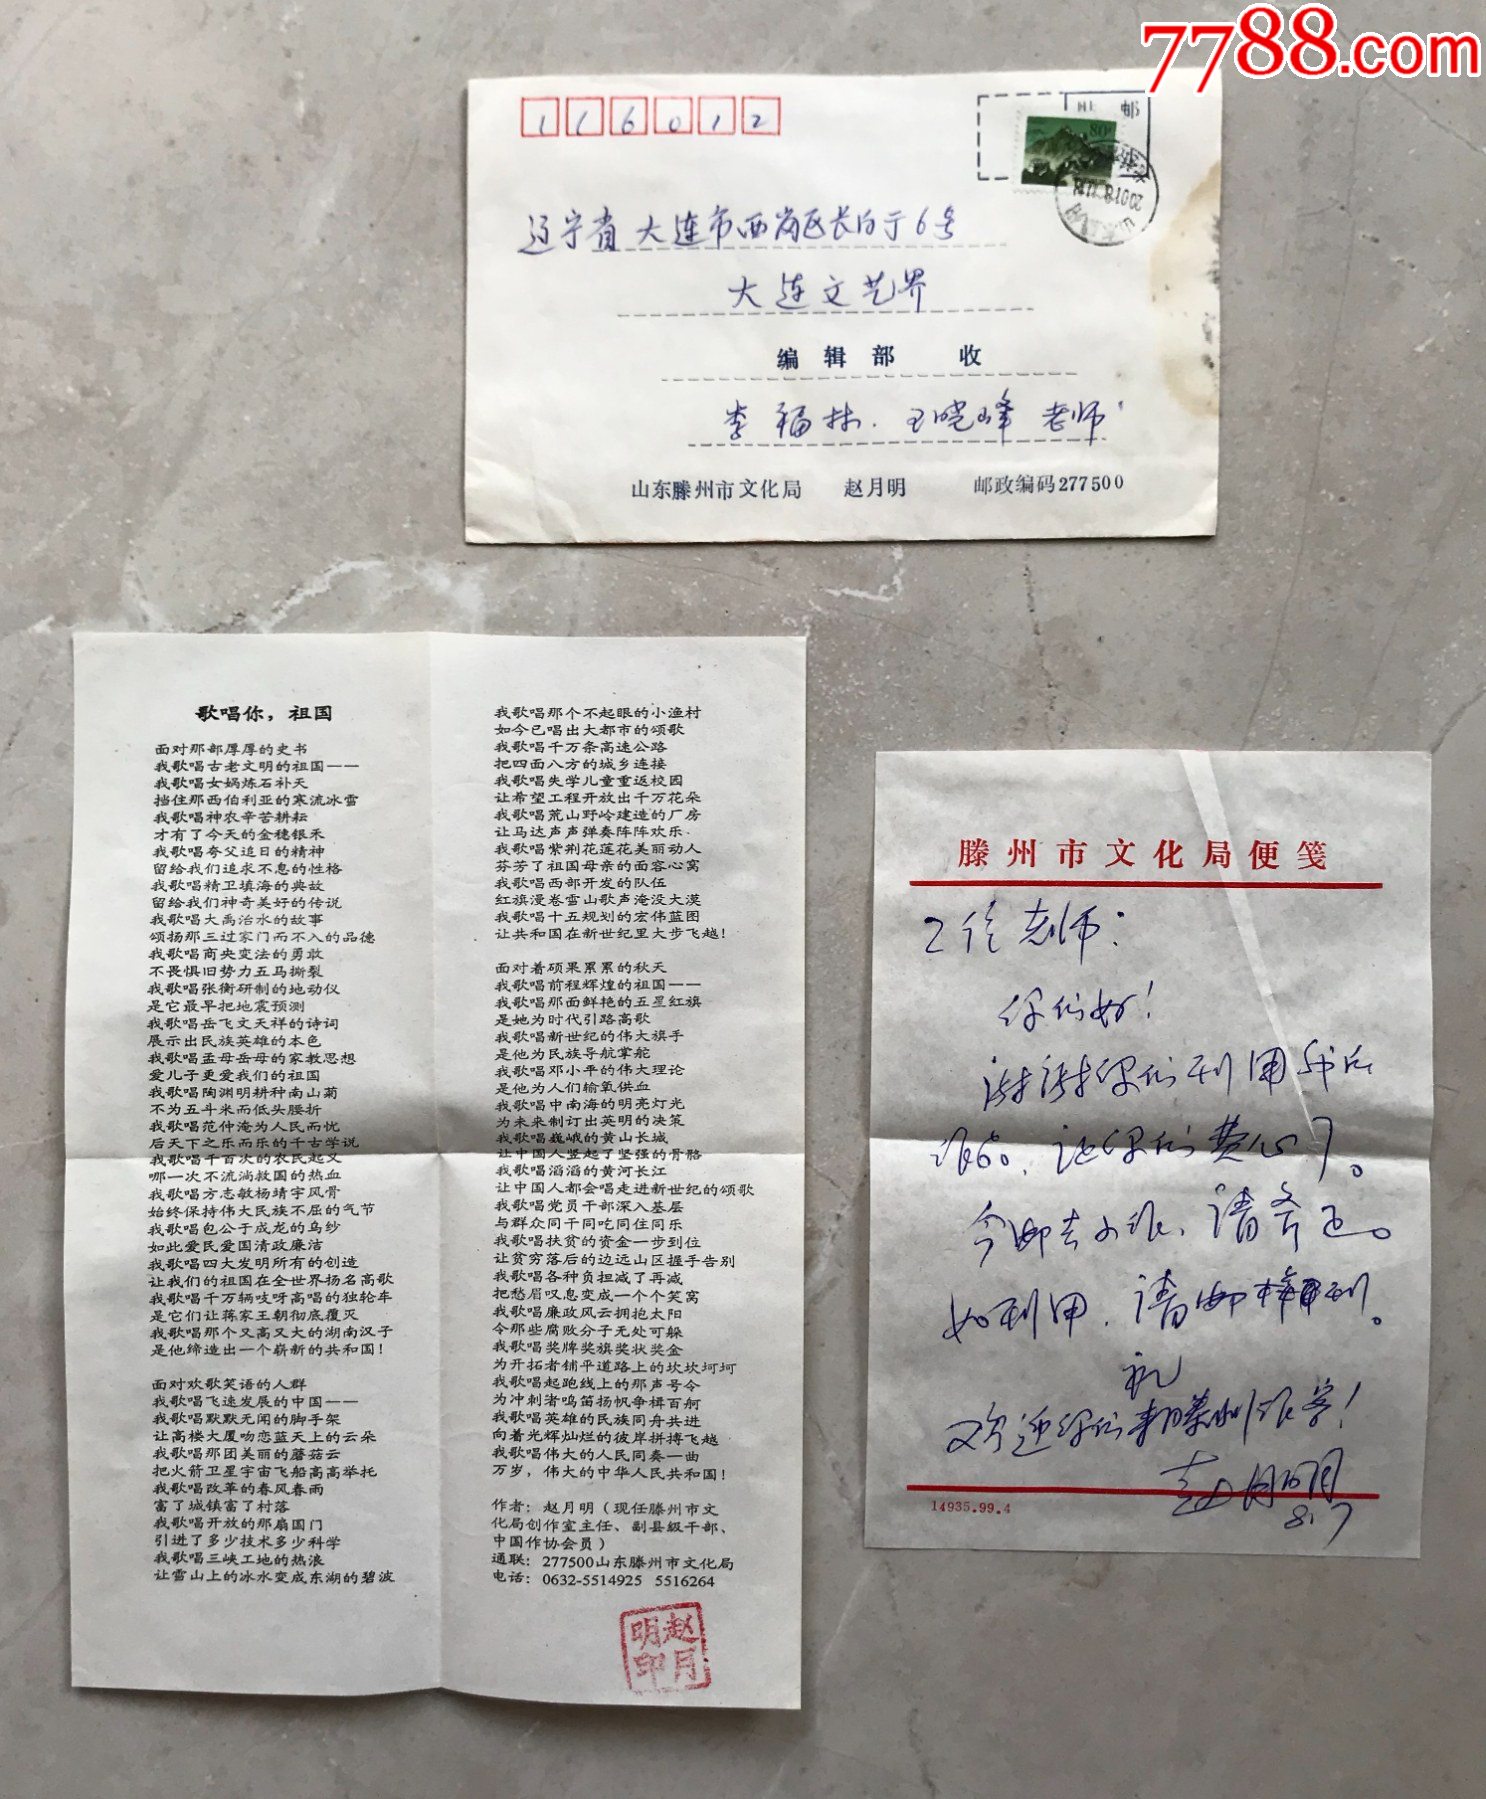 7788.com
116012
80分
辽宁省大连市西岗区长白街6号
大连文艺界
编辑部 收
李福林.王晓峰 老师
山东滕州市文化局 赵月明 邮政编码277500
歌唱你，祖国
面对那部厚厚的史书
我歌唱古老文明的祖国——
我歌唱女娲炼石补天
挡住那西伯利亚的寒流冰雪
我歌唱神农辛苦耕耘
才有了今天的金穗银禾
我歌唱夸父追日的精神
留给我们追求不息的性格
我歌唱精卫填海的典故
留给我们神奇美好的传说
我歌唱大禹治水的故事
颂扬那三过家门而不入的品德
我歌唱商央变法的勇敢
不畏惧旧势力五马撕裂
我歌唱张衡研制的地动仪
是它最早把地震预测
我歌唱岳飞文天祥的诗词
展示出民族英雄的本色
我歌唱孟母岳母的家教思想
爱儿子更爱我们的祖国
我歌唱陶渊明耕种南山菊
不为五斗米而低头腰折
我歌唱范仲淹为人民而忧
后天下之乐而乐的千古学说
我歌唱千百次的农民起义
哪一次不流淌救国的热血
我歌唱方志敏杨靖宇风骨
始终保持伟大民族不屈的气节
我歌唱包公于成龙的乌纱
如此爱民爱国清政廉洁
我歌唱四大发明所有的创造
让我们的祖国在全世界扬名高歌
我歌唱千万辆吱呀高唱的独轮车
是它们让蒋家王朝彻底覆灭
我歌唱那个又高又大的湖南汉子
是他缔造出一个崭新的共和国！
面对欢歌笑语的人群
我歌唱飞速发展的中国——
我歌唱默默无闻的脚手架
让高楼大厦吻恋蓝天上的云朵
我歌唱那团美丽的蘑菇云
把火箭卫星宇宙飞船高高举托
我歌唱改革的春风春雨
富了城镇富了村落
我歌唱开放的那扇国门
引进了多少技术多少科学
我歌唱三峡工地的热浪
让雪山上的冰水变成东湖的碧波
我歌唱那个不起眼的小渔村
如今已唱出大都市的颂歌
我歌唱千万条高速公路
把四面八方的城乡连接
我歌唱失学儿童重返校园
让希望工程开放出千万花朵
我歌唱荒山野岭建造的厂房
让马达声声弹奏阵阵欢乐
我歌唱紫荆花莲花美丽动人
芬芳了祖国母亲的面容心窝
我歌唱西部开发的队伍
红旗漫卷雪山歌声淹没大漠
我歌唱十五规划的宏伟蓝图
让共和国在新世纪里大步飞越！
面对着硕果累累的秋天
我歌唱前程辉煌的祖国——
我歌唱那面鲜艳的五星红旗
是她为时代引路高歌
我歌唱新世纪的伟大旗手
是他为民族导航掌舵
我歌唱邓小平的伟大理论
是他为人们输氧供血
我歌唱中南海的明亮灯光
为未来制订出英明的决策
我歌唱巍峨的黄山长城
让中国人竖起了坚强的骨骼
我歌唱滔滔的黄河长江
让中国人都会唱走进新世纪的颂歌
我歌唱党员干部深入基层
与群众同干同吃同住同乐
我歌唱扶贫的资金一步到位
让贫穷落后的边远山区握手告别
我歌唱各种负担减了再减
把愁眉叹息变成一个个笑窝
我歌唱廉政风云拥抱太阳
令那些腐败分子无处可躲
我歌唱奖牌奖旗奖状奖金
为开拓者铺平道路上的坎坎坷坷
我歌唱起跑线上的那声号令
为冲刺者鸣笛扬帆争楫百舸
我歌唱英雄的民族同舟共进
向着光辉灿烂的彼岸拼搏飞越
我歌唱伟大的人民同奏一曲
万岁，伟大的中华人民共和国！
作者：赵月明（现任滕州市文
化局创作室主任、副县级干部、
中国作协会员）
通联：277500山东滕州市文化局
电话：0632-5514925 5516264
赵月明印
滕州市文化局便笺
2位老师：
你们好！
谢谢你们刊用我
让你们费心了。
今邮去小诗，请斧正。
如刊用，请邮样刊。
礼
欢迎你们来滕州
赵月明
8.7
14935.99.4